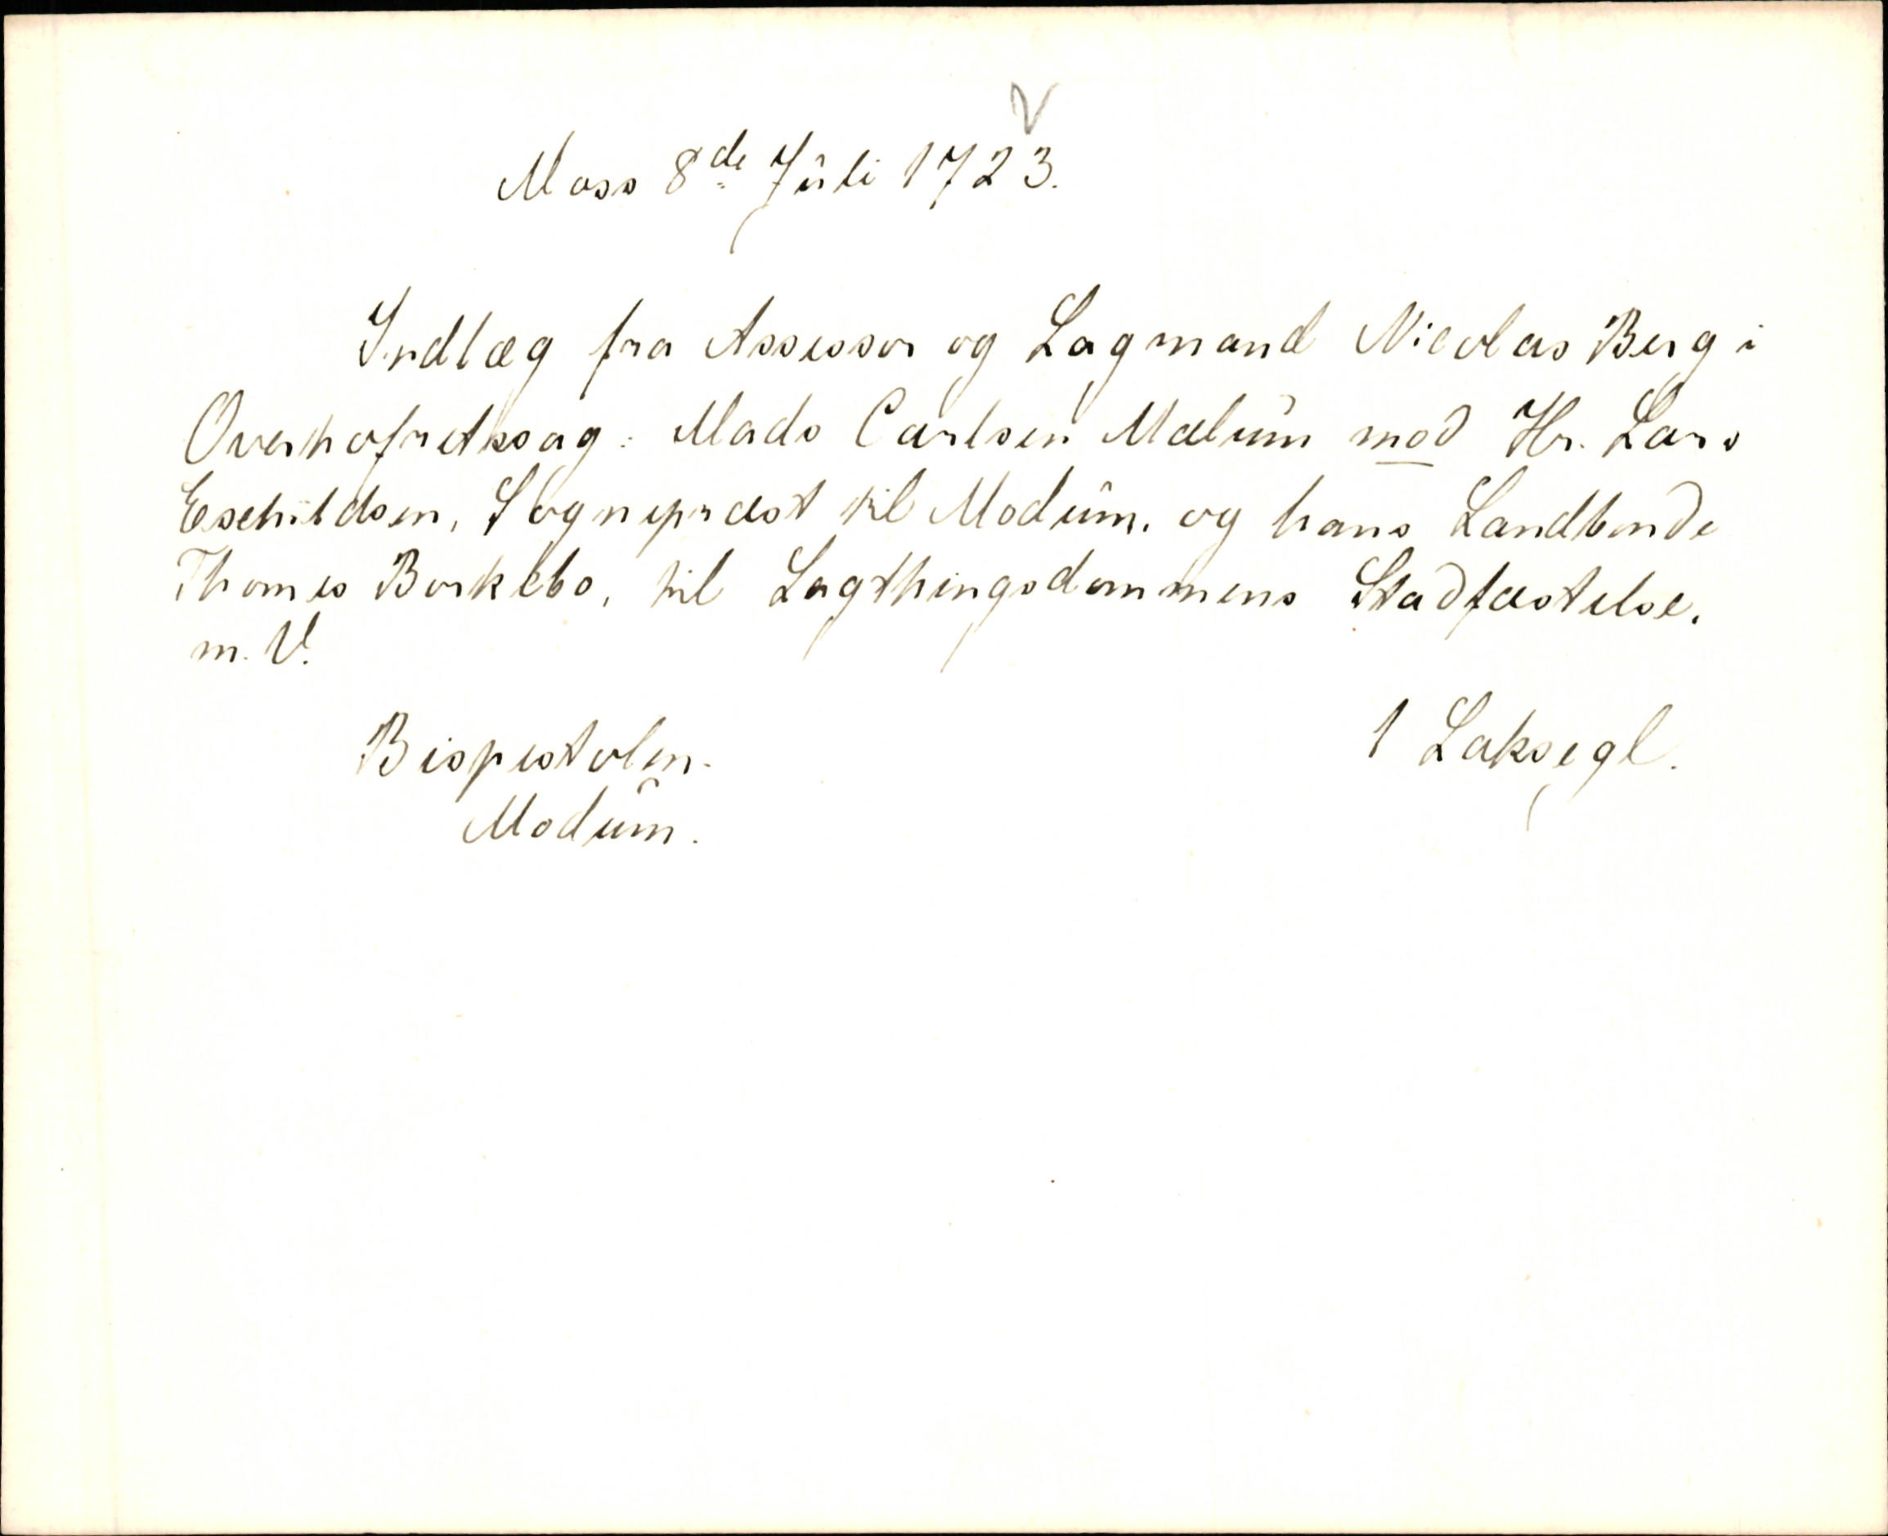 Moss 8de Juli 1723.
Indlæg fra Assessor og Lagmand Nicolas Berg i
Overhofretssag: Mads Carlsen Mælum mod Hr. Lars
Eschildsen, Sognepræst til Modum, og hans Landbonde
Thomes Borkebo, til Lagthingsdommens Stadfæstelse.
m. V.
Bispestolen.
1 Laksegl.
Modum.